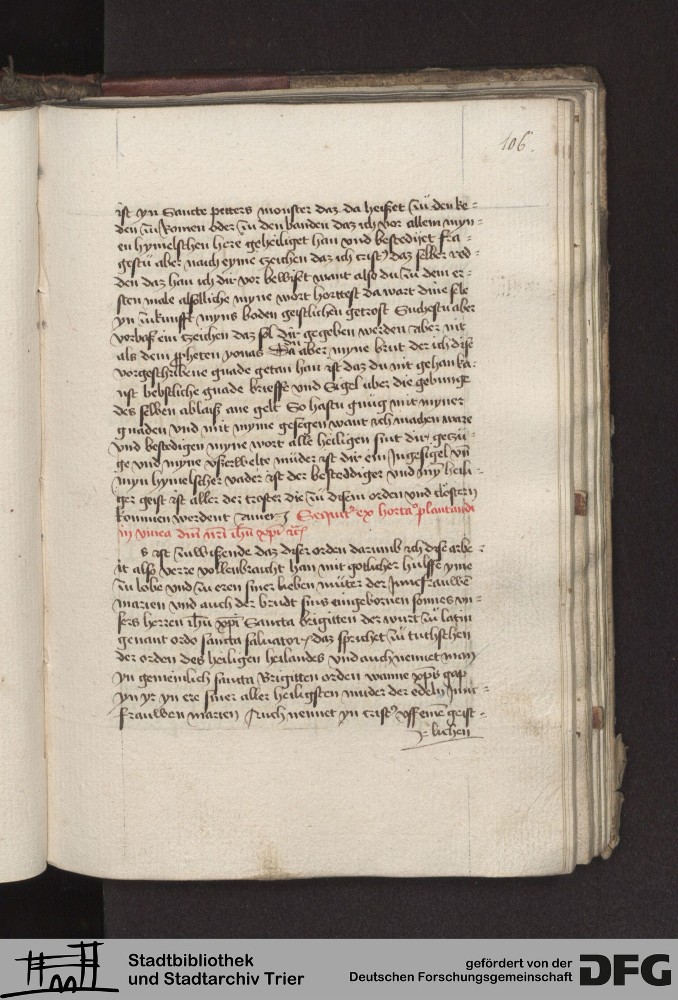 106.
ist yn Sancte petters monster daz da heißet zu den ke-
den zu Romen oder zu den banden daz ich vor allem myn-
en hymelschen here geheiliget han vnd bestediget fra-
gestu aber nach eyme zeichen daz ich crist9 daz selber red-
den daz han ich dir vor bewiset want also du zu dem er-
sten male alsolliche myne wort hortest da wart dine sele
yn zukunfft myns boden geistlichen getrost Suchestu aber
vorbaß ein zeichen daz sol dir gegeben werden aber nit
als dem propheten yonas Dū aber myne brut der ich dise
vorgeschribene gnade getan han ist daz du nit gehan ka-
nst bebstliche gnade brieffe vnd Sigel uber die gebunge
des selben ablaiß ane gelt So hastu gnug mit myner
gnaden vnd mit myme gesegen want ich machen ware
vnd bestedigen myne wort alle heiligen sint dir gezu-
ge vnd myne vßerwelte muder ist dir ein Ingesigel vn̄
myn hymelscher vader ist der besteddiger vnd my̅ heili-
ger geist ist aller der troster die zu disem orden vnd clostern
kommen werdent Amen Sequit̄ ex horta° plantandi
in vinea dn̄i nr̄i ih̄u xp̄i etc̄
s ist zu wißende daz diser orden darumb ich dise arbe-
it also verre vollenbraucht han mit gotlicher hulffe yme
zu lobe vnd zu eren siner lieben muter der Juncfrauwē
marien vnd auch der brudt sins eingebornen sonnes vn-
sers herren ih̄u xp̄i Sancta brigitten der wurt zu latin
genant ordo sancta saluator9 daz sprichet zu tutschen
der orden des heiligen heilandes vnd auch nennet man
yn gemeinlich sancta Brigitten orden wanne xp̄s gap
yn yr yn ere siner aller heiligsten muder der edeln Junc-
frauwen marien Auch nennet yn crist9 vff eine geist-
lichen
Stadtbibliothek
und Stadtarchiv Trier
gefördert von der
Deutschen Forschungsgemeinschaft
DFG